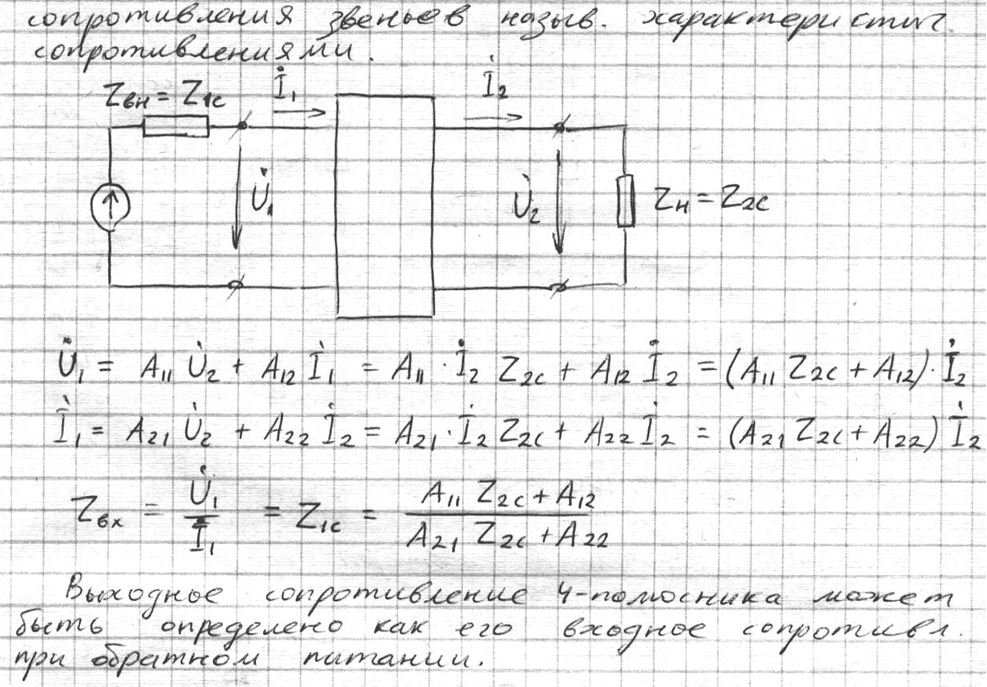 сопротивления звеньев назыв. характеристич.
сопротивлениями.
Zвн = Z1c İ1 İ2
U̇1 U̇2 Zн = Z2c
U̇1 = A11 U̇2 + A12 İ1 = A11 · İ2 Z2c + A12 İ2 = (A11 Z2c + A12) · İ2
İ1 = A21 U̇2 + A22 İ2 = A21 · İ2 Z2c + A22 İ2 = (A21 Z2c + A22) İ2
Zвх = U̇1 / İ1 = Z1c = (A11 Z2c + A12) / (A21 Z2c + A22)
Выходное сопротивление 4-полюсника может
быть определено как его входное сопротивл.
при обратном питании.